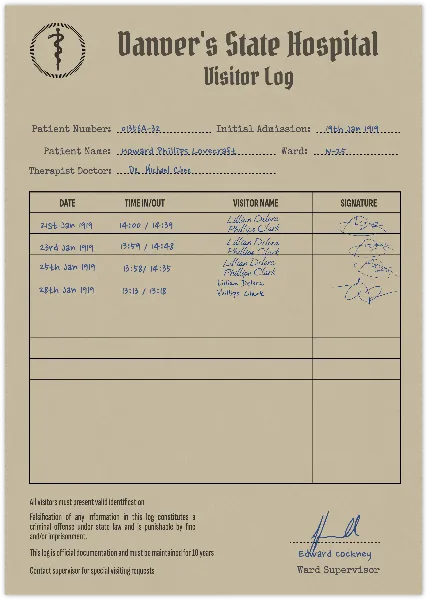 Danver's State Hospital
Visitor Log
Patient Number: 01356A-32 Initial Admission: 19th Jan 1919
Patient Name: Howard Phillips Lovecraft Ward: N-25
Therapist Doctor: Dr. Michael
DATE TIME IN/OUT VISITOR NAME SIGNATURE
21st Jan 1919 14:00 / 14:39 Lillian Delora
Phillips Clark
23rd Jan 1919 13:59 / 14:48 Lillian Delora
Phillips Clark
25th Jan 1919 13:58 / 14:35 Lillian Delora
Phillips Clark
28th Jan 1919 13:13 / 13:18 Lillian Delora
Phillips Clark
All visitors must present valid identification
Falsification of any information in this log constitutes a
criminal offense under state law and is punishable by fine
and/or imprisonment.
This log is official documentation and must be maintained for 10 years
Contact supervisor for special visiting requests
Edward Cockney
Ward Supervisor